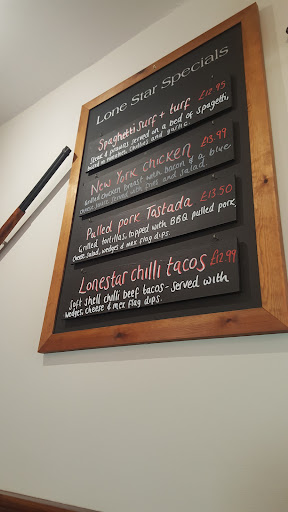 Lone Star Specials
Spaghetti surf + turf £12.95
Steak & prawns served on a bed of spagetti,
tossed in tomatoes, chillies and garlic.
New York chicken £13.99
Grilled chicken breast with bacon & a blue
cheese sauce served with fries and salad.
Pulled pork Tostada £13.50
Grilled tortillas, topped with BBQ pulled pork,
cheese, salad, wedges & mex flag dips.
Lonestar chilli tacos £12.99
Soft shell chilli beef tacos - served with
wedges, cheese & mex flag dips.